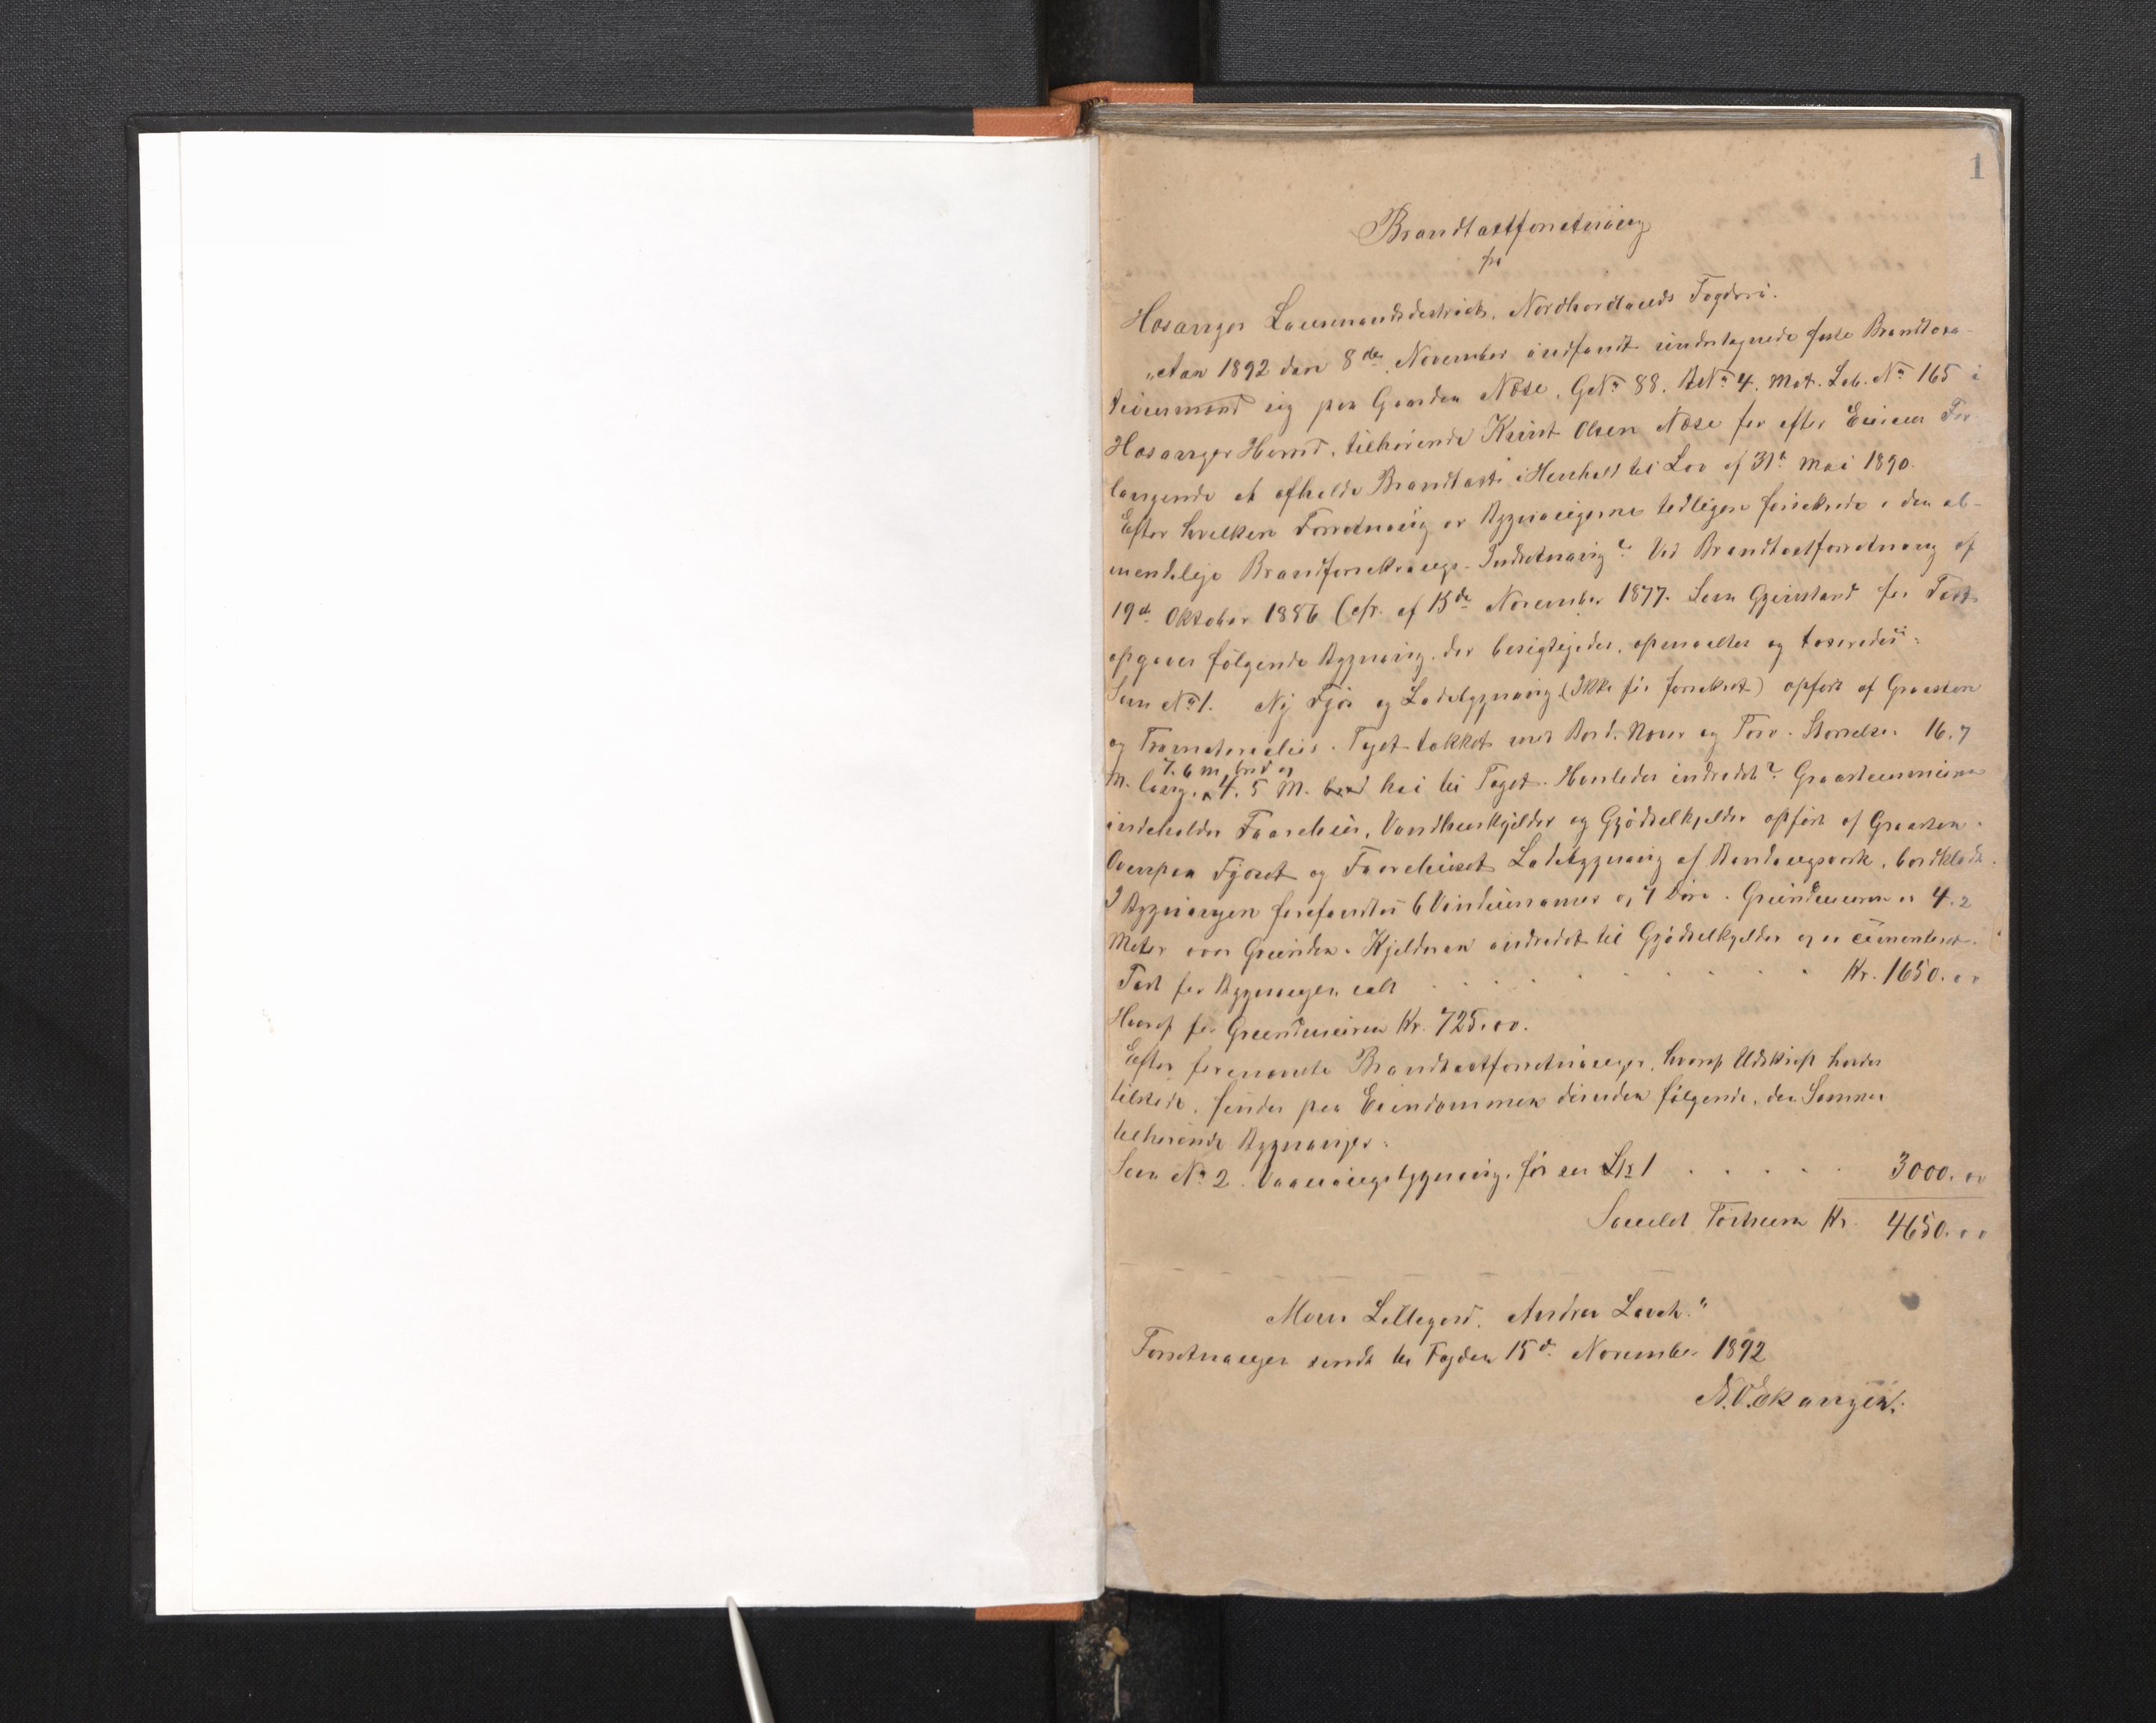 1
Brandtaxtforretning
fra
Hosanger Lensmandsdistrikt, Nordhordlands Fogderi.
„Aar 1892 den 8de November indfandt undertegnede faste Brandtaxa-
tionsmænd sig paa Gaarden Næse, GNo 88. BNo 4. Mat. Lab. No 165 i
Hosanger Herred, tilhørende Knut Olsen Næse for efter Eierens For-
langende at afholde Brandtaxt i Henhold til Lov af 31te Mai 1890.
Efter hvilken Forretning er Bygningerne tidligere forsikrede i den al-
mindelige Brandforsikrings-Indretning? Ved Brandtaxtforretning af
19de Oktober 1886 (cfr. af 15de November 1877. Som Gjenstand for Taxt
opgaves følgende Bygning, der besigtigedes, opmaaltes og taxeredes:
Som No 1. Ny Fjøs og Ladebygning (Ikke før forsikret) opført af Graasten
og Træmaterialier. Taget tækket med Bord, Næver og Torv. Størrelse 16.7
7.6 m. bred og
M. lang, 4.5 M. bred høi til Taget. Hvorledes indredet? Graastensmuren
indeholder Faarehus, Vandhuskjelder og Gjødselkjelder opført af Graasten.
Ovenpaa Fjøset og Faarehuset Ladebygning af Bindingsværk, bordklædt.
I Bygningen forefandtes 6 Vinduesrammer og 7 Døre. Grundmuren er 4.2
Meter over Grunden. Kjelderen indredet til Gjødselkjelder og er cementeret.
Taxt for Bygningen ialt . . . . . . . Kr. 1650.00
Heraf for Grundmuren Kr. 725.00.
Efter forevendte Brandtaxtforretninger, hvoraf Udskrift havdes
tilstede, findes paa Eiendommen desuden følgende, den Samme
tilhørende Bygninger:
Som No 2. Vaaningsbygning, før sub Litr 1 . . . . . 3000.00
Samlet Taxtsum Kr. 4650.00
Mons Lillegard. Andreas Lavik."
Forretningen sendt til Fogden 15de November 1892
N.O. Eknangen.